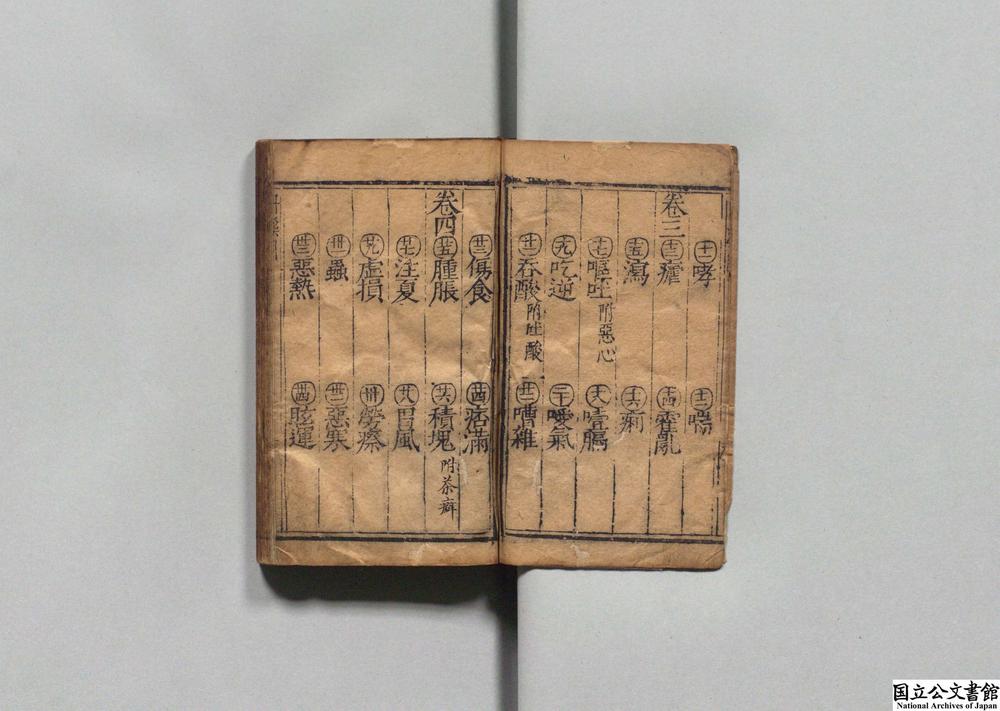 十一哮 十二喘
卷三
十三瘧 十四霍亂
十五瀉 十六痢
十七嘔吐附惡心 十八噎膈
十九吃逆 二十噯氣
廿一吞酸附吐酸 廿二嘈雜
廿三傷食 廿四痞滿
卷四
廿五腫脹 廿六積塊附茶癖
廿七注夏 廿八胃風
廿九虛損 卅勞瘵
卅一蟲 卅二惡寒
卅三惡熱 卅四眩運
国立公文書館
National Archives of Japan